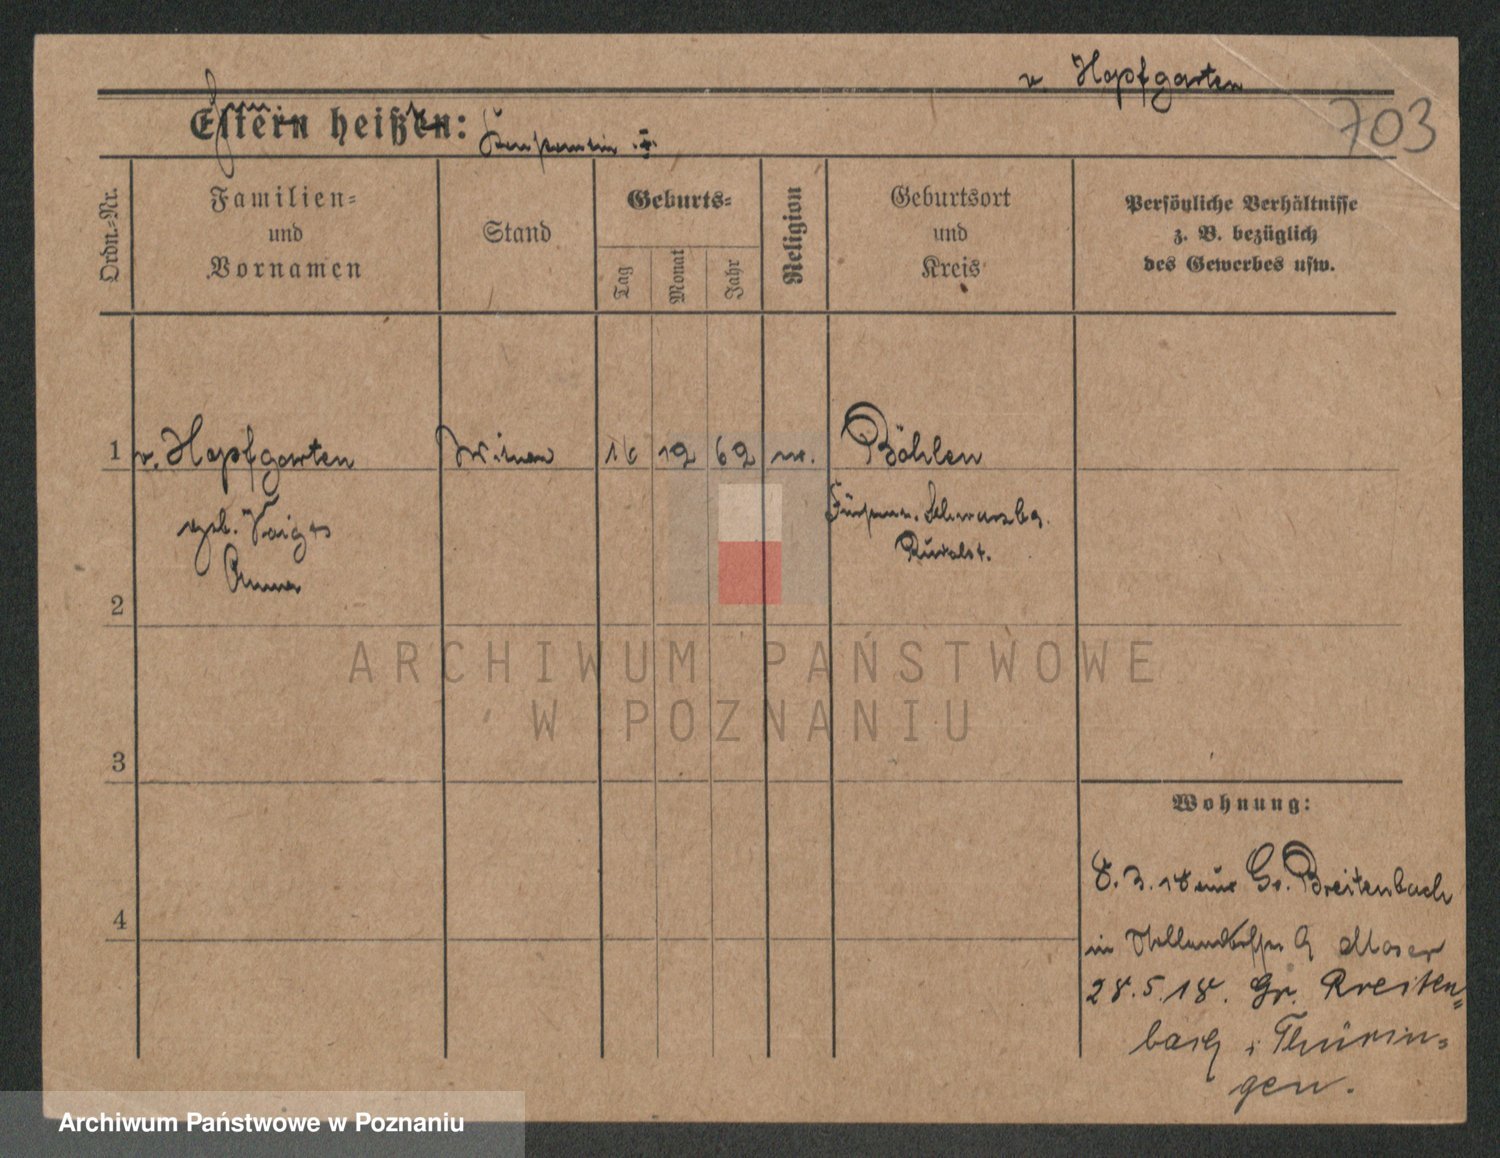 v. Hopfgarten
703
Eltern heißen:
Ordn.-Nr.
Familien-
und
Vornamen
Stand
Geburts-
Tag
Monat
Jahr
Religion
Geburtsort
und
Kreis
Persönliche Verhältnisse
z. B. bezüglich
des Gewerbes usw.
1 v. Hopfgarten Witwe 16 12 62 ev. Böhlen
geb. Voigt
Schwarzbg.
Rudolst.
Anna
2
3
4
Wohnung:
8.3.18 aus Gr. Breitenbach
in
28.5.18. Gr. Breiten-
bach i Thürin-
gen.
ARCHIWUM PAŃSTWOWE
W POZNANIU
Archiwum Państwowe w Poznaniu